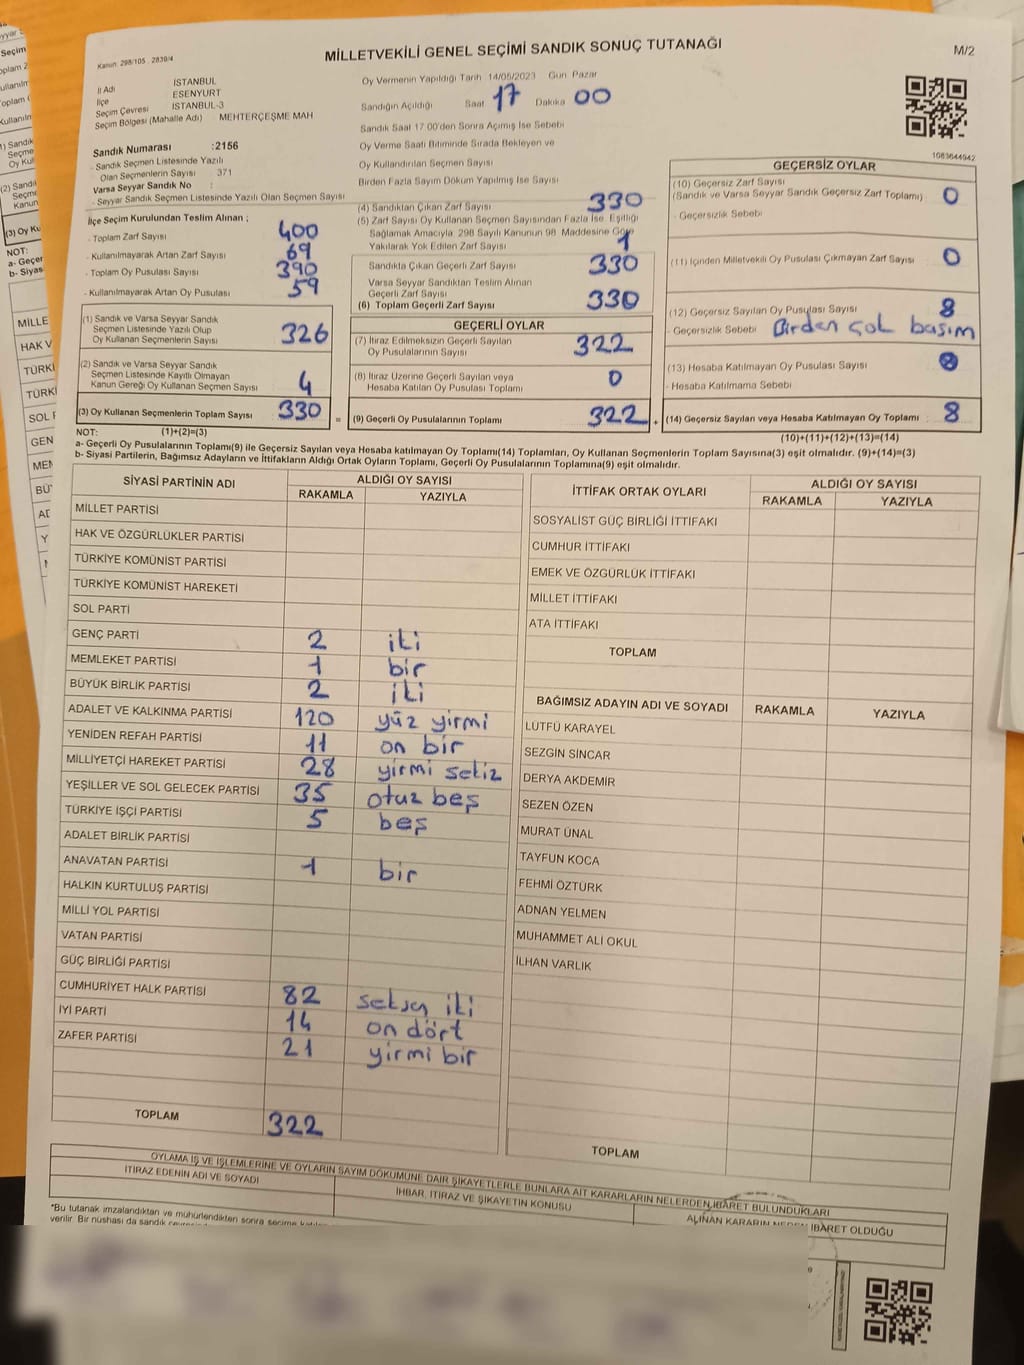 MİLLETVEKİLİ GENEL SEÇİMİ SANDIK SONUÇ TUTANAĞI
M/2
Kanun: 298/105 . 2839/4
İl Adı İSTANBUL
İlçe ESENYURT
Seçim Çevresi İSTANBUL-3
Seçim Bölgesi (Mahalle Adı) MEHTERÇEŞME MAH
Sandık Numarası :2156
- Sandık Seçmen Listesinde Yazılı
Olan Seçmenlerin Sayısı : 371
Varsa Seyyar Sandık No :
- Seyyar Sandık Seçmen Listesinde Yazılı Olan Seçmen Sayısı
Oy Vermenin Yapıldığı Tarih 14/05/2023 Gün Pazar
Sandığın Açıldığı Saat 17 Dakika 00
Sandık Saat 17.00'den Sonra Açımış İse Sebebi
Oy Verme Saati Bitiminde Sırada Bekleyen ve
Oy Kullandırılan Seçmen Sayısı
Birden Fazla Sayım Döküm Yapılmış İse Sayısı
1083644942
İlçe Seçim Kurulundan Teslim Alınan ;
- Toplam Zarf Sayısı 400
- Kullanılmayarak Artan Zarf Sayısı 69
- Toplam Oy Pusulası Sayısı 390
- Kullanılmayarak Artan Oy Pusulası 59
(1) Sandık ve Varsa Seyyar Sandık
Seçmen Listesinde Yazılı Olup
Oy Kullanan Seçmenlerin Sayısı 326
(2) Sandık ve Varsa Seyyar Sandık
Seçmen Listesinde Kayıtlı Olmayan
Kanun Gereği Oy Kullanan Seçmen Sayısı 4
(3) Oy Kullanan Seçmenlerin Toplam Sayısı 330 =
(4) Sandıktan Çıkan Zarf Sayısı 330
(5) Zarf Sayısı Oy Kullanan Seçmen Sayısından Fazla İse, Eşitliği
Sağlamak Amacıyla, 298 Sayılı Kanunun 98. Maddesine Göre
Yakılarak Yok Edilen Zarf Sayısı 1
Sandıkta Çıkan Geçerli Zarf Sayısı 330
Varsa Seyyar Sandıktan Teslim Alınan
Geçerli Zarf Sayısı
(6) Toplam Geçerli Zarf Sayısı 330
GEÇERLİ OYLAR
(7) İtiraz Edilmeksizin Geçerli Sayılan
Oy Pusulalarının Sayısı 322
(8) İtiraz Üzerine Geçerli Sayılan veya
Hesaba Katılan Oy Pusulası Toplamı 0
(9) Geçerli Oy Pusulalarının Toplamı 322 +
GEÇERSİZ OYLAR
(10) Geçersiz Zarf Sayısı
(Sandık ve Varsa Seyyar Sandık Geçersiz Zarf Toplamı) 0
- Geçersizlik Sebebi
(11) İçinden Milletvekili Oy Pusulası Çıkmayan Zarf Sayısı 0
(12) Geçersiz Sayılan Oy Pusulası Sayısı 8
- Geçersizlik Sebebi Birden çok basım
(13) Hesaba Katılmayan Oy Pusulası Sayısı
- Hesaba Katılmama Sebebi
(14) Geçersiz Sayılan veya Hesaba Katılmayan Oy Toplamı : 8
NOT: (1)+(2)=(3) (10)+(11)+(12)+(13)=(14)
a- Geçerli Oy Pusulalarının Toplamı(9) ile Geçersiz Sayılan veya Hesaba katılmayan Oy Toplamı(14) Toplamları, Oy Kullanan Seçmenlerin Toplam Sayısına(3) eşit olmalıdır. (9)+(14)=(3)
b- Siyasi Partilerin, Bağımsız Adayların ve İttifakların Aldığı Ortak Oyların Toplamı, Geçerli Oy Pusulalarının Toplamına(9) eşit olmalıdır.
SİYASİ PARTİNİN ADI ALDIĞI OY SAYISI
RAKAMLA YAZIYLA
MİLLET PARTİSİ
HAK VE ÖZGÜRLÜKLER PARTİSİ
TÜRKİYE KOMÜNİST PARTİSİ
TÜRKİYE KOMÜNİST HAREKETİ
SOL PARTİ
GENÇ PARTİ 2 iki
MEMLEKET PARTİSİ 1 bir
BÜYÜK BİRLİK PARTİSİ 2 iki
ADALET VE KALKINMA PARTİSİ 120 yüz yirmi
YENİDEN REFAH PARTİSİ 11 on bir
MİLLİYETÇİ HAREKET PARTİSİ 28 yirmi sekiz
YEŞİLLER VE SOL GELECEK PARTİSİ 35 otuz beş
TÜRKİYE İŞÇİ PARTİSİ 5 beş
ADALET BİRLİK PARTİSİ
ANAVATAN PARTİSİ 1 bir
HALKIN KURTULUŞ PARTİSİ
MİLLİ YOL PARTİSİ
VATAN PARTİSİ
GÜÇ BİRLİĞİ PARTİSİ
CUMHURİYET HALK PARTİSİ 82 seksen iki
İYİ PARTİ 14 on dört
ZAFER PARTİSİ 21 yirmi bir
TOPLAM 322
İTTİFAK ORTAK OYLARI ALDIĞI OY SAYISI
RAKAMLA YAZIYLA
SOSYALİST GÜÇ BİRLİĞİ İTTİFAKI
CUMHUR İTTİFAKI
EMEK VE ÖZGÜRLÜK İTTİFAKI
MİLLET İTTİFAKI
ATA İTTİFAKI
TOPLAM
BAĞIMSIZ ADAYIN ADI VE SOYADI RAKAMLA YAZIYLA
LÜTFÜ KARAYEL
SEZGİN SİNCAR
DERYA AKDEMİR
SEZEN ÖZEN
MURAT ÜNAL
TAYFUN KOCA
FEHMİ ÖZTÜRK
ADNAN YELMEN
MUHAMMET ALİ OKUL
İLHAN VARLIK
TOPLAM
OYLAMA İŞ VE İŞLEMLERİNE VE OYLARIN SAYIM DÖKÜMÜNE DAİR ŞİKAYETLERLE BUNLARA AİT KARARLARIN NELERDEN İBARET BULUNDUKLARI
İTİRAZ EDENİN ADI VE SOYADI İHBAR, İTİRAZ VE ŞİKAYETİN KONUSU ALINAN KARARIN NEDEN İBARET OLDUĞU
*Bu tutanak imzalandıktan ve mühürlendikten sonra seçime
verilir. Bir nüshası da sandık